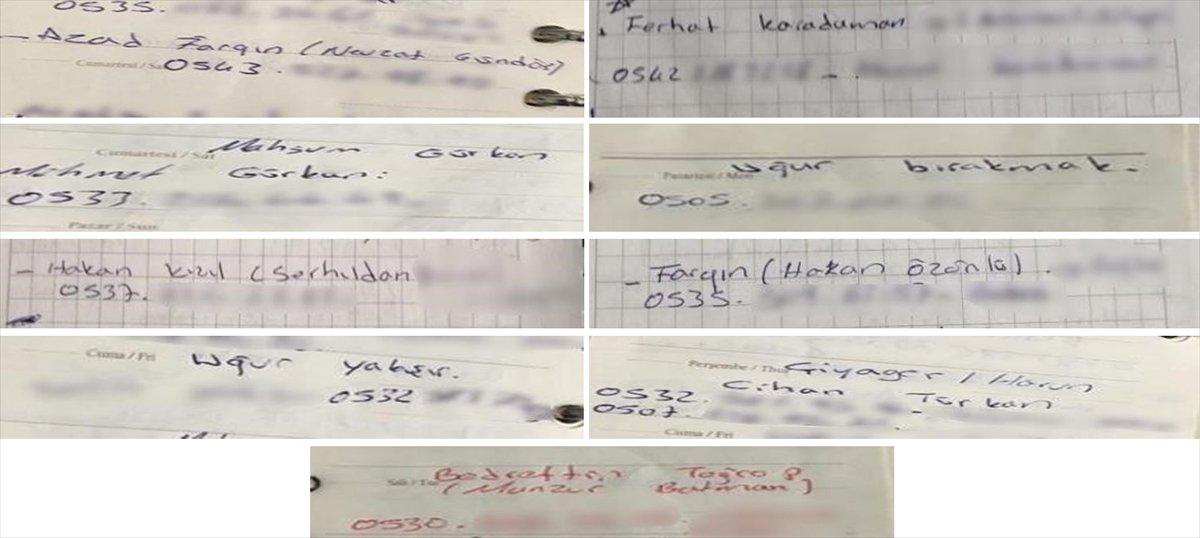 0535.
- Azad Farqın (Nevzat Gündöş)
Cumartesi / Sat
0543.
Ferhat karadaman
0542 -
Cumartesi / Sat Mahsum Gürkan
Mehmet Gürkan:
0533.
Pazar / Sun
Uğur bırakmak.
Pazartesi / Mon
0505.
- Hakan kızıl (Serhıldan
0537.
- Farqın (Hakan özönlü).
0535.
Cuma / Fri Uğur yakışır.
0532
Perşembe / Thu Giyager / Harun
0532. Cihan Türkan
0507.
Cuma / Fri
Bedrettin Toğrop
(Munzur Batman)
0530.